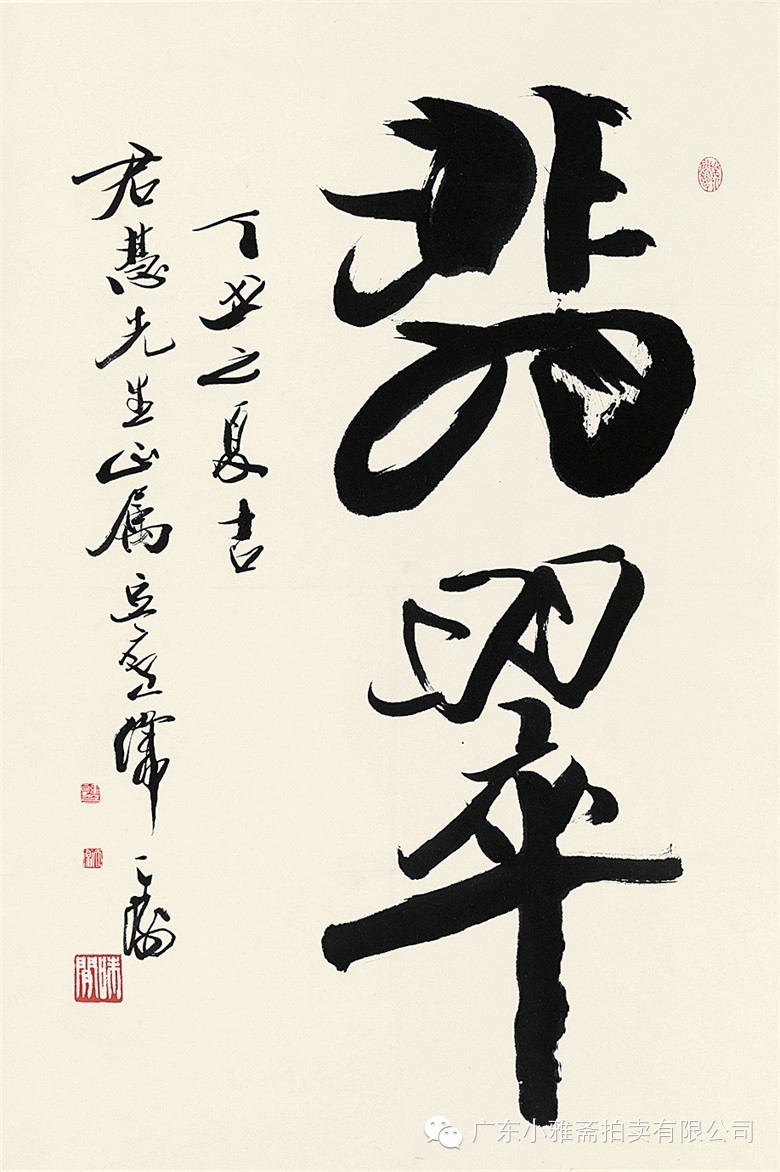 翡翠
丁丑之夏吉
君慧先生正属
广东小雅斋拍卖有限公司